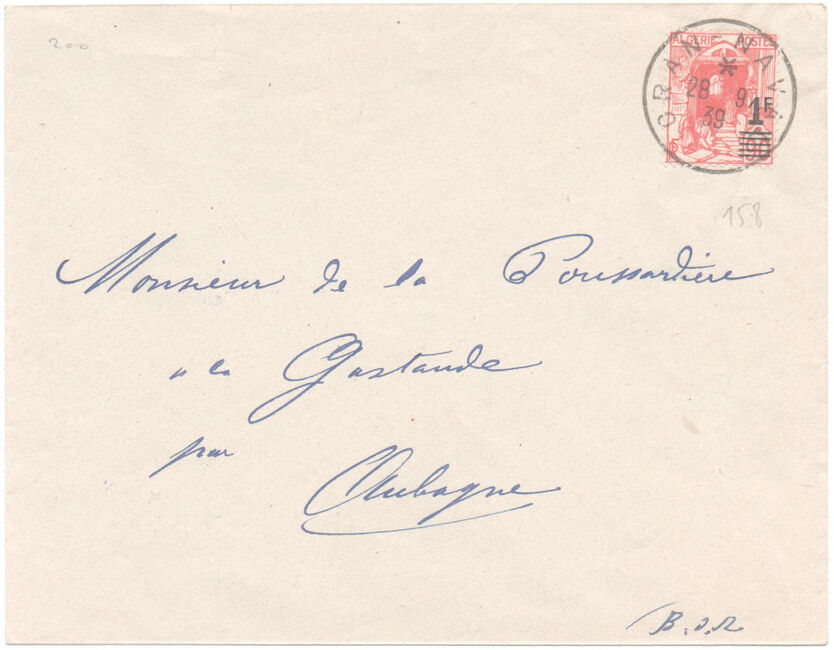 200
ALGERIE POSTES
ORAN NAV
28 9
39
1F
90
158
Monsieur de la Poussardière
a la Gastaude
par
Aubagne
B.d.R.